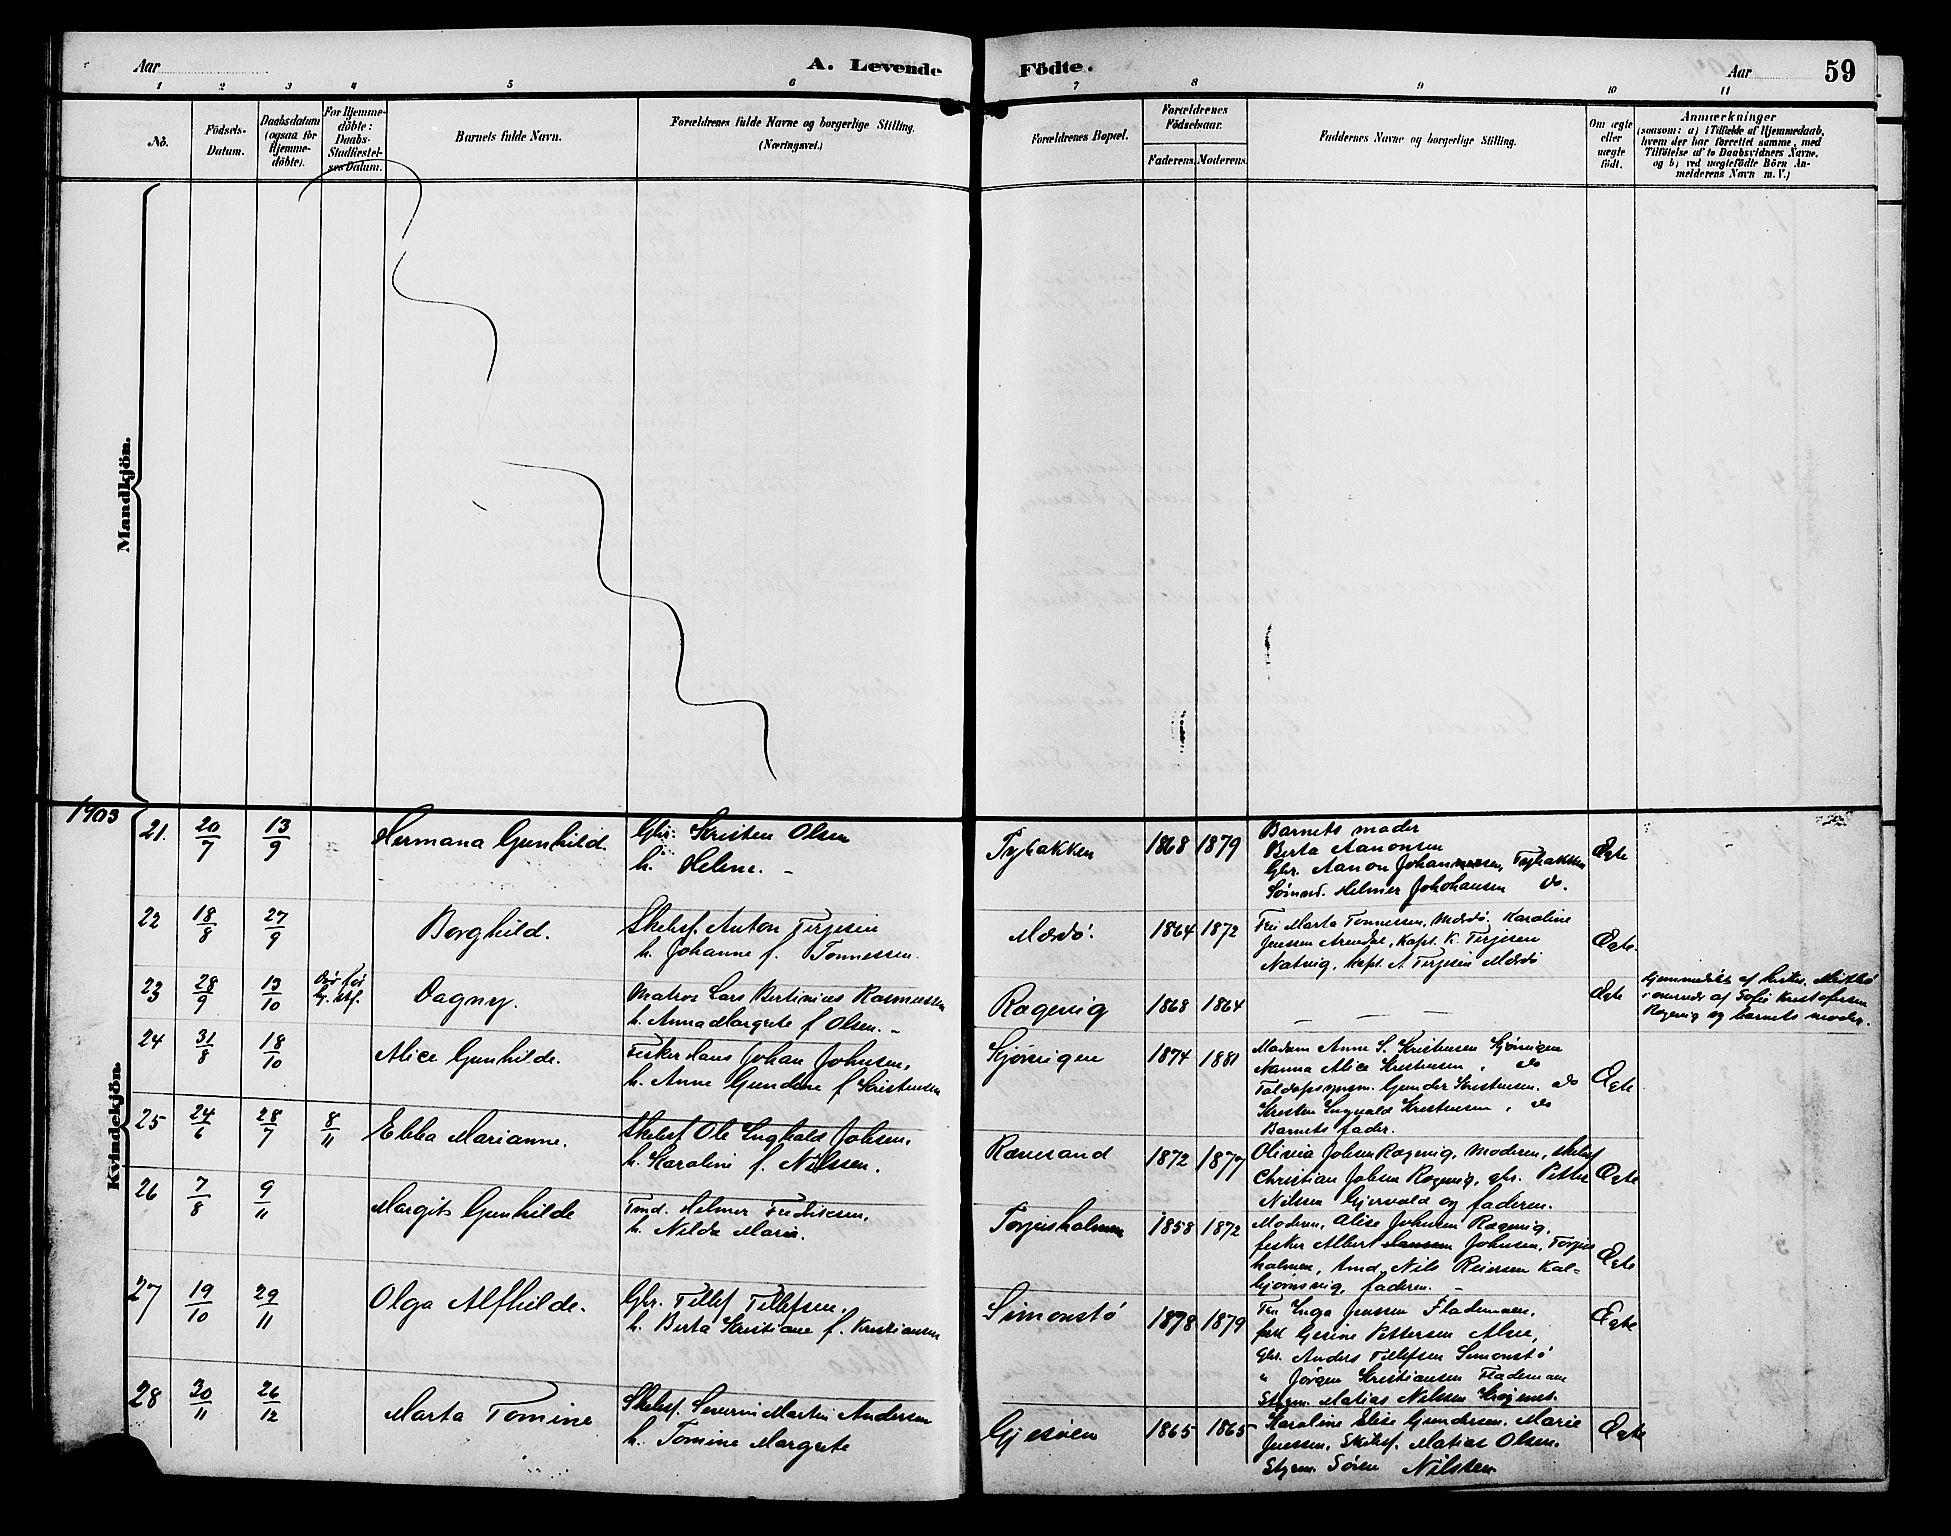 Aar
A. Levende
Födte.
Aar
59
1 2 3 4 5 6 7 8 9 10 11
No.
Födsels-
Datum.
Daabsdatum
(ogsaa for
Hjemme-
döbte).
For Hjemme-
döbte:
Daabs-
Stadfæstel-
ses Datum.
Barnets fulde Navn.
Forældrenes fulde Navne og borgerlige Stilling.
(Næringsvei.)
Forældrenes Bopæl.
Forældrenes
Födselsaar.
Faderens. Moderens.
Faddernes Navne og borgerlige Stilling.
Om ægte
eller
uægte
födt.
Anmærkninger
(saasom: a) i Tilfælde af Hjemmedaab,
hvem der har forrettet samme, med
Tilföielse af to Daabsvidners Navne,
og b) ved uægtefödte Börn An-
melderens Navn m. V.)
Mandkjön.
Kvindekjön.
1903
21. 20/7 13/9 Hermana Gunhild. Gbr. Kristen Olsen
h. Helene. –
Trybakken 1868 1879 Barnets moder
Berta Aanonsen
Gbr. Aanon Johannessen, Trybakken
Sömand. Helmer Johohansen do.
Ægte
22 18/8 27/9 Borghild. Skibsf. Anton Terjesen
h. Johanne f. Tönnessen.
Mærdö. 1864 1872 Fru Marta Tönnessen, Mærdö. Karoline
Jenssen Arendal, Kapt. K. Terjesen
Natvig, Kapt. A Terjesen Mærdö
Ægte.
23 28/9 13/10 Dagny. Matros Lars Bertinius Rasmussen
h. Anna Margrete f Olsen. –
Ragevig 1868 1864 – – –
Ægte
Hjemmedöbt af
i overvær af Sofie Kristofersen
Ragevig og barnets moder.
24 31/8 18/10 Alice Gunhilde. Fisker Hans Johan Johnsen,
h. Anne Gundine f Kristensen
Gjervigen 1874 1881 Madam Anne S. Kristensen
Nanna Alice Kristensen, do
Gunder Kristensen, do
Kristen Ingvald Kristensen, do
Barnets fader.
Ægte
25 24/6 28/7 8/11 Ebba Marianne. Skibsf Ole Johsen,
h. Karoline f. Nilssen.
Rævesand 1872 1877 Olivia Johsen Ragevig, Moderen, skibsf
Christian Johsen Ragevig, gbr. Petter
Nilssen Gjervold og faderen.
Ægte
26 7/8 9/11 Margit Gunhilde Tmd. Helmer Fredriksen,
h. Nilda Marie.
Torjusholmen 1858 1872 Moderen, Alise Johnsen Ragevig,
fisker Albert Johnsen, Torjus
holmen, Tmd. Nils Reiersen Kal-
björnsvig, faderen. –
Ægte
27 19/10 29/11 Olga Alfhilde. Gbr. Tellef Tellefsen.
h. Berta Kristiane f. Kristiansen
Simonstö 1878 1879 Fru Inga Jenssen Flademoen,
Gesine Pettersen Alve,
Gbr. Anders Tellefsen Simonstö
" Jörgen Kristiansen Flademoen
Styrm. Matias Nilssen
Ægte
28 30/11 26/12 Marta Tomine Skibsf. Severin Martin Andersen
h. Tomine Margrete
Gjesöen 1865 1865 Karoline Elise Gundersen. Marie
Jenssen, Skibsf. Matias Olsen.
Styrm. Sören Nilssen
Ægte